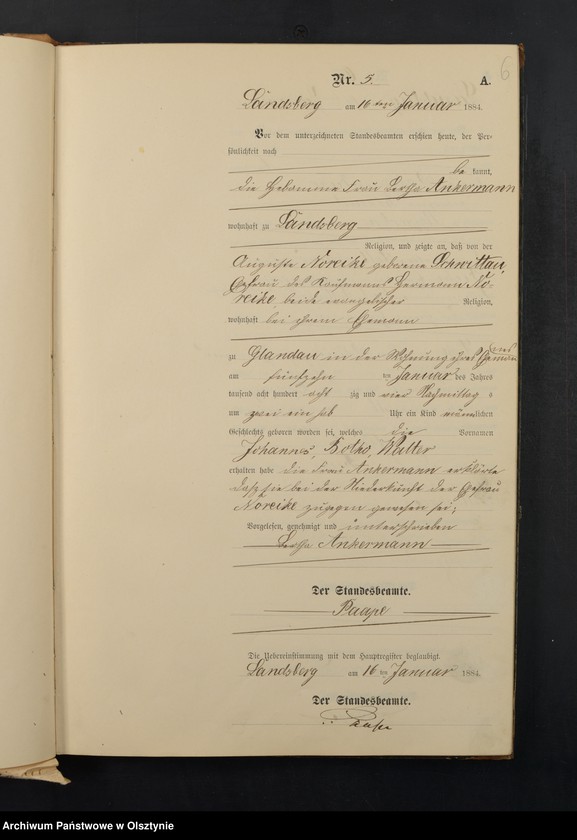 6
Nr. 5. A.
Landsberg am 16 ten Januar 1884.
Vor dem unterzeichneten Standesbeamten erschien heute, der Per-
sönlichkeit nach
be kannt,
die Hebamme Frau Bertha Ankermann
wohnhaft zu Landsberg
Religion, und zeigte an, daß von der
Auguste Noreike geborene
Ehefrau des Kaufmanns Hermann No-
reike, beide evangelischer Religion,
wohnhaft bei ihrem Ehemann
zu Glandau in der Wohnung ihres Ehemannes
am fünfzehn ten Januar des Jahres
tausend acht hundert acht zig und vier Nachmittag s
um zwei ein halb Uhr ein Kind männlichen
Geschlechts geboren worden sei, welches die Vornamen
Johannes, Botho, Walter
erhalten habe die Frau Ankermann erklärte
daß sie bei der Niederkunft der Ehefrau
Noreike zugegen gewesen sei;
Vorgelesen, genehmigt und unterschrieben
Bertha Ankermann
Der Standesbeamte.
Paape
Die Uebereinstimmung mit dem Hauptregister beglaubigt.
Landsberg am 16 ten Januar 1884.
Der Standesbeamte.
Paape
Archiwum Państwowe w Olsztynie